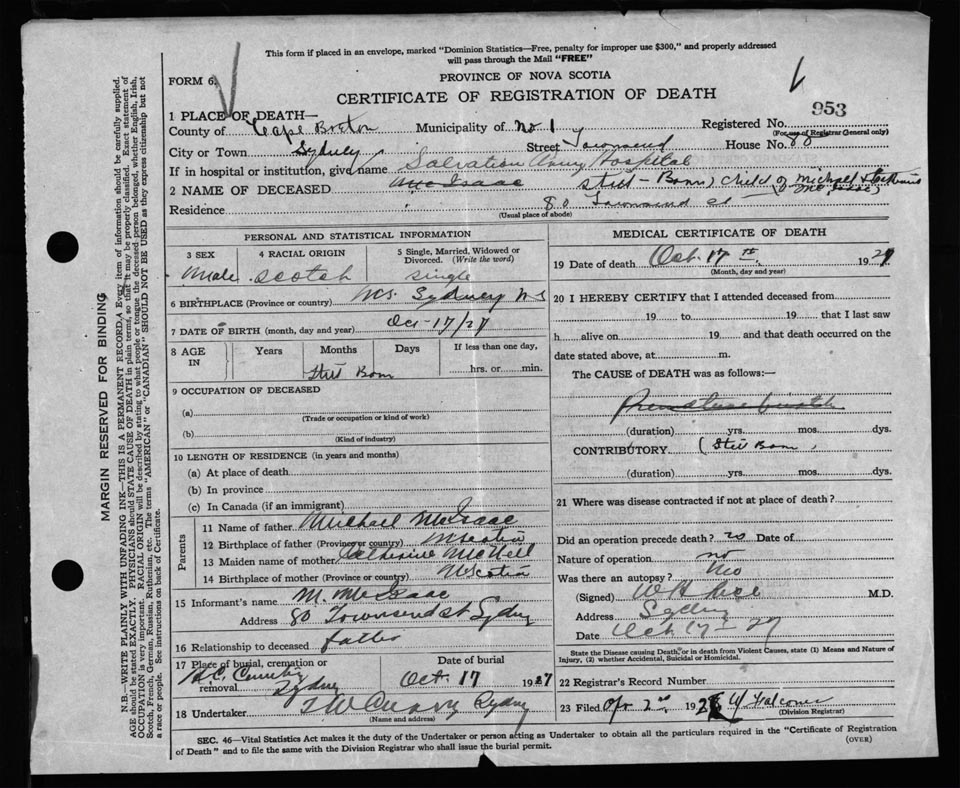 This form if placed in an envelope, marked "Dominion Statistics—Free, penalty for improper use $300," and properly addressed
will pass through the Mail "FREE"
FORM 6.
PROVINCE OF NOVA SCOTIA
CERTIFICATE OF REGISTRATION OF DEATH
1 PLACE OF DEATH— Registered No. 953
(For use of Registrar General only)
County of Cape Breton Municipality of No 1
City or Town Sydney Street Townsend House No. 80
If in hospital or institution, give name Salvation Army Hospital
2 NAME OF DECEASED McIsaac Still-Born, child of Michael & Catherine McIsaac
Residence 80 Townsend St
(Usual place of abode)
PERSONAL AND STATISTICAL INFORMATION
3 SEX 4 RACIAL ORIGIN 5 Single, Married, Widowed or Divorced. (Write the word)
Male Scotch single
6 BIRTHPLACE (Province or country) Sydney NS
7 DATE OF BIRTH (month, day and year) Oct-17/27
8 AGE IN Years Months Days If less than one day, hrs. or min.
Still Born
9 OCCUPATION OF DECEASED
(a)
(Trade or occupation or kind of work)
(b)
(Kind of industry)
10 LENGTH OF RESIDENCE (in years and months)
(a) At place of death
(b) In province
(c) In Canada (if an immigrant)
Parents
11 Name of father Michael McIsaac
12 Birthplace of father (Province or country) N Scotia
13 Maiden name of mother Catherine McNeil
14 Birthplace of mother (Province or country) N Scotia
15 Informant's name M. McIsaac
Address 80 Townsend st Sydney
16 Relationship to deceased father
17 Place of burial, cremation or removal Date of burial
R.C. Cemetry Sydney Oct 17 1927
18 Undertaker Sydney
(Name and address)
MEDICAL CERTIFICATE OF DEATH
19 Date of death Oct. 17th, 1927
(Month, day and year)
20 I HEREBY CERTIFY that I attended deceased from
19 to 19 that I last saw
h alive on 19 and that death occurred on the
date stated above, at m.
The CAUSE of DEATH was as follows:—
(duration) yrs. mos. dys.
CONTRIBUTORY (Still Born)
(duration) yrs. mos. dys.
21 Where was disease contracted if not at place of death?
Did an operation precede death? no Date of
Nature of operation no
Was there an autopsy? No
(Signed) M.D.
Address Sydney
Date Oct 17-27
State the Disease causing Death, or in death from Violent Causes, state (1) Means and Nature of
Injury, (2) whether Accidental, Suicidal or Homicidal.
22 Registrar's Record Number
23 Filed 192
(Division Registrar)
SEC. 46—Vital Statistics Act makes it the duty of the Undertaker or person acting as Undertaker to obtain all the particulars required in the "Certificate of Registration
of Death" and to file the same with the Division Registrar who shall issue the burial permit.
(OVER)
MARGIN RESERVED FOR BINDING
N.B.—WRITE PLAINLY WITH UNFADING INK—THIS IS A PERMANENT RECORD. Every item of information should be carefully supplied.
AGE should be stated EXACTLY. PHYSICIANS should STATE CAUSE OF DEATH in plain terms, so that it may be properly classified. Exact statement of
OCCUPATION is very important. RACIAL ORIGIN will be described by stating to what people or tongue the deceased person belonged, whether English, Irish,
Scotch, French, German, Russian, Ruthenian, etc. The terms "AMERICAN" or "CANADIAN" SHOULD NOT BE USED as they express citizenship but not
a race or people. See instructions on back of Certificate.